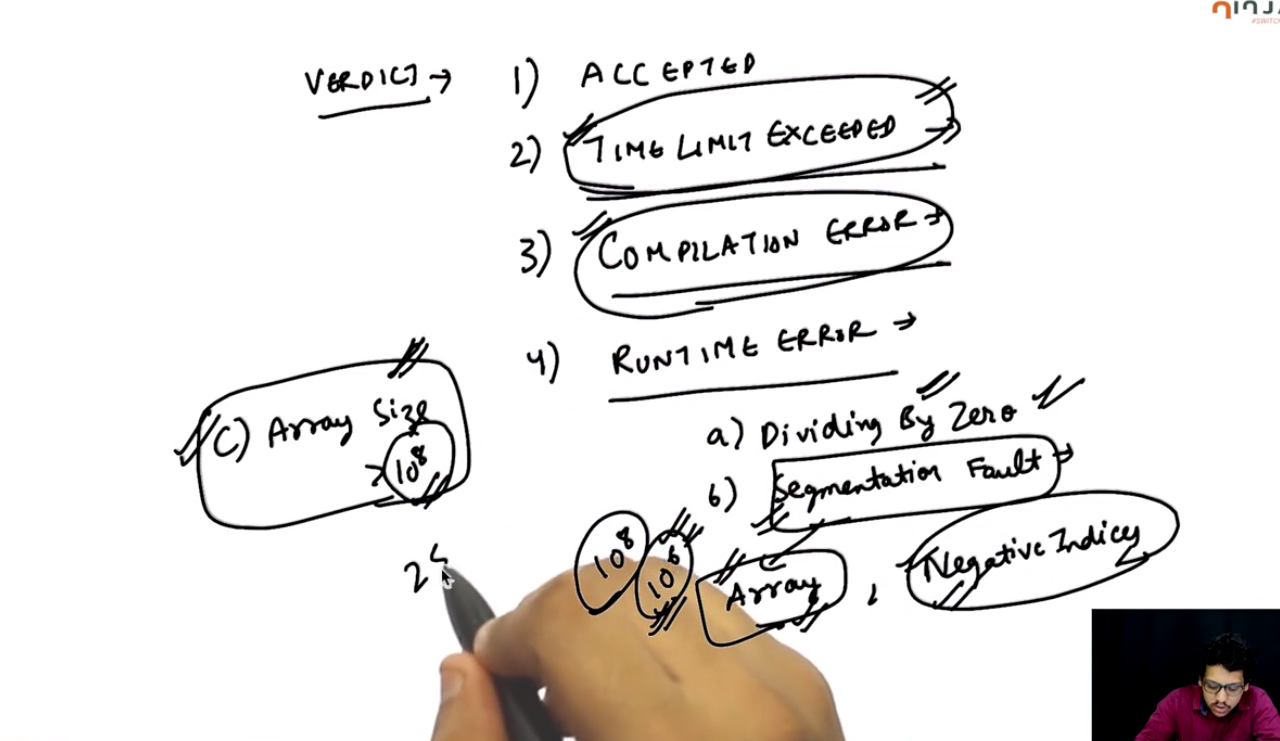 NINJA
#SWITCH
VERDICT → 1) ACCEPTED
2) TIME LIMIT EXCEEDED →
3) COMPILATION ERROR →
4) RUNTIME ERROR →
a) Dividing By Zero ✓
b) Segmentation Fault →
Array , Negative Indices
10⁸ 10⁶
C) Array Size
> 10⁸